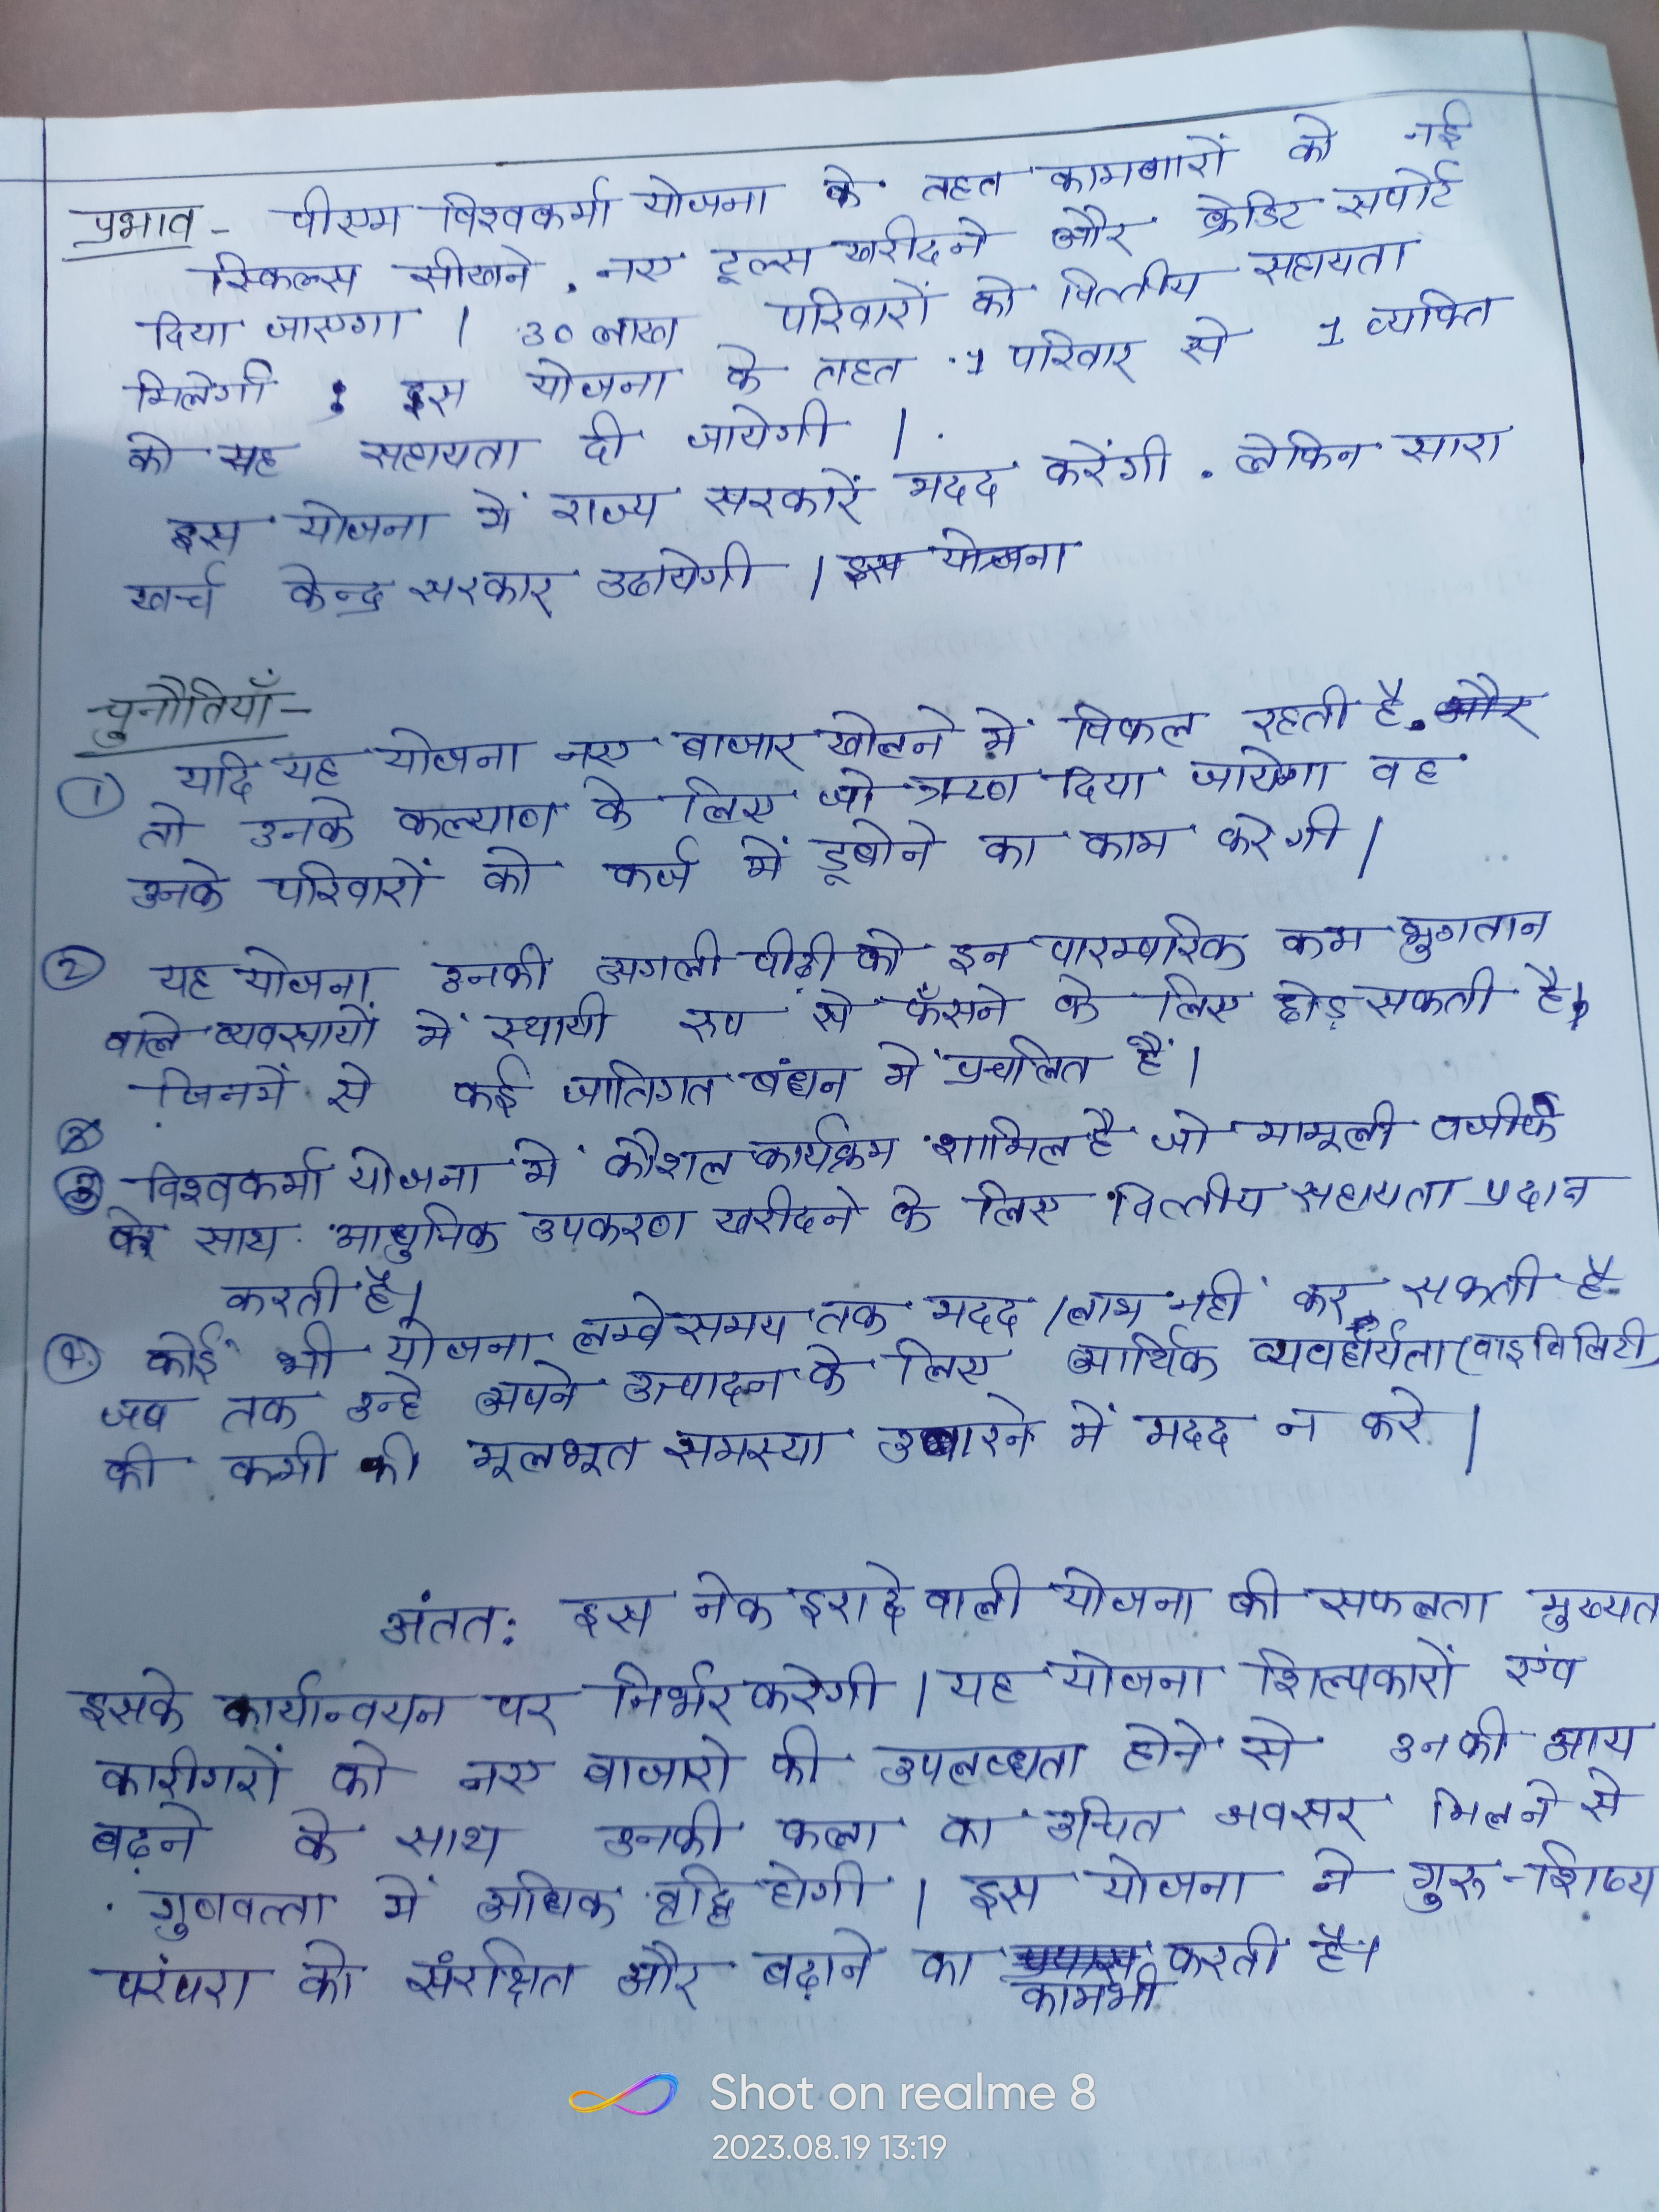 प्रभाव - पीएम विश्वकर्मा योजना के तहत कामगारों को नई
स्किल्स सीखने, नए टूल्स खरीदने और क्रेडिट सपोर्ट
दिया जाएगा। 30 लाख परिवारों को वित्तीय सहायता
मिलेगी; इस योजना के तहत 1 परिवार से 1 व्यक्ति
को यह सहायता दी जायेगी।
इस योजना में राज्य सरकारें मदद करेंगी. लेकिन सारा
खर्च केन्द्र सरकार उठायेगी। इस योजना
चुनौतियाँ-
① यदि यह योजना नए बाजार खोलने में विफल रहती है. और
तो उनके कल्याण के लिए जो ऋण दिया जायेगा वह
उनके परिवारों को कर्ज में डूबोने का काम करेगी।
② यह योजना उनकी अगली पीढ़ी को इन पारम्परिक कम भुगतान
वाले व्यवसायों में स्थायी रुप से फँसने के लिए छोड़ सकती है,
जिनमें से कई जातिगत बंधन मे प्रचलित हैं।
③ विश्वकर्मा योजना मे कौशल कार्यक्रम शामिल है जो मामूली वजीफे
के साथ आधुनिक उपकरण खरीदने के लिए वित्तीय सहायता प्रदान
करती है।
④ कोई भी योजना लम्बे समय तक मदद/लाभ नहीं कर सकती है
जब तक उन्हे अपने उत्पादन के लिए आर्थिक व्यवहार्यता (वाइबिलिटी)
की कमी की मूलभूत समस्या उबारने में मदद न करे।
अंतत: इस नेक इरादे वाली योजना की सफलता मुख्यत
इसके कार्यान्वयन पर निर्भर करेगी। यह योजना शिल्पकारों एंव
कारीगरों को नए बाजारो की उपलब्धता होने से उनकी आय
बढ़ने के साथ उनकी कला का उचित अवसर मिलने से
गुणवत्ता में अधिक वृद्धि होगी। इस योजना ने गुरु-शिष्य
परंपरा को संरक्षित और बढ़ाने का करती है।
काम भी
Shot on realme 8
2023.08.19 13:19